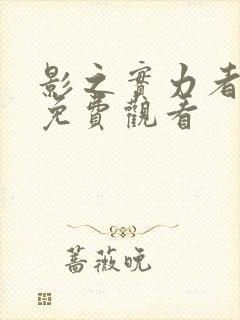 影之實力者
免費觀看
薔薇晚